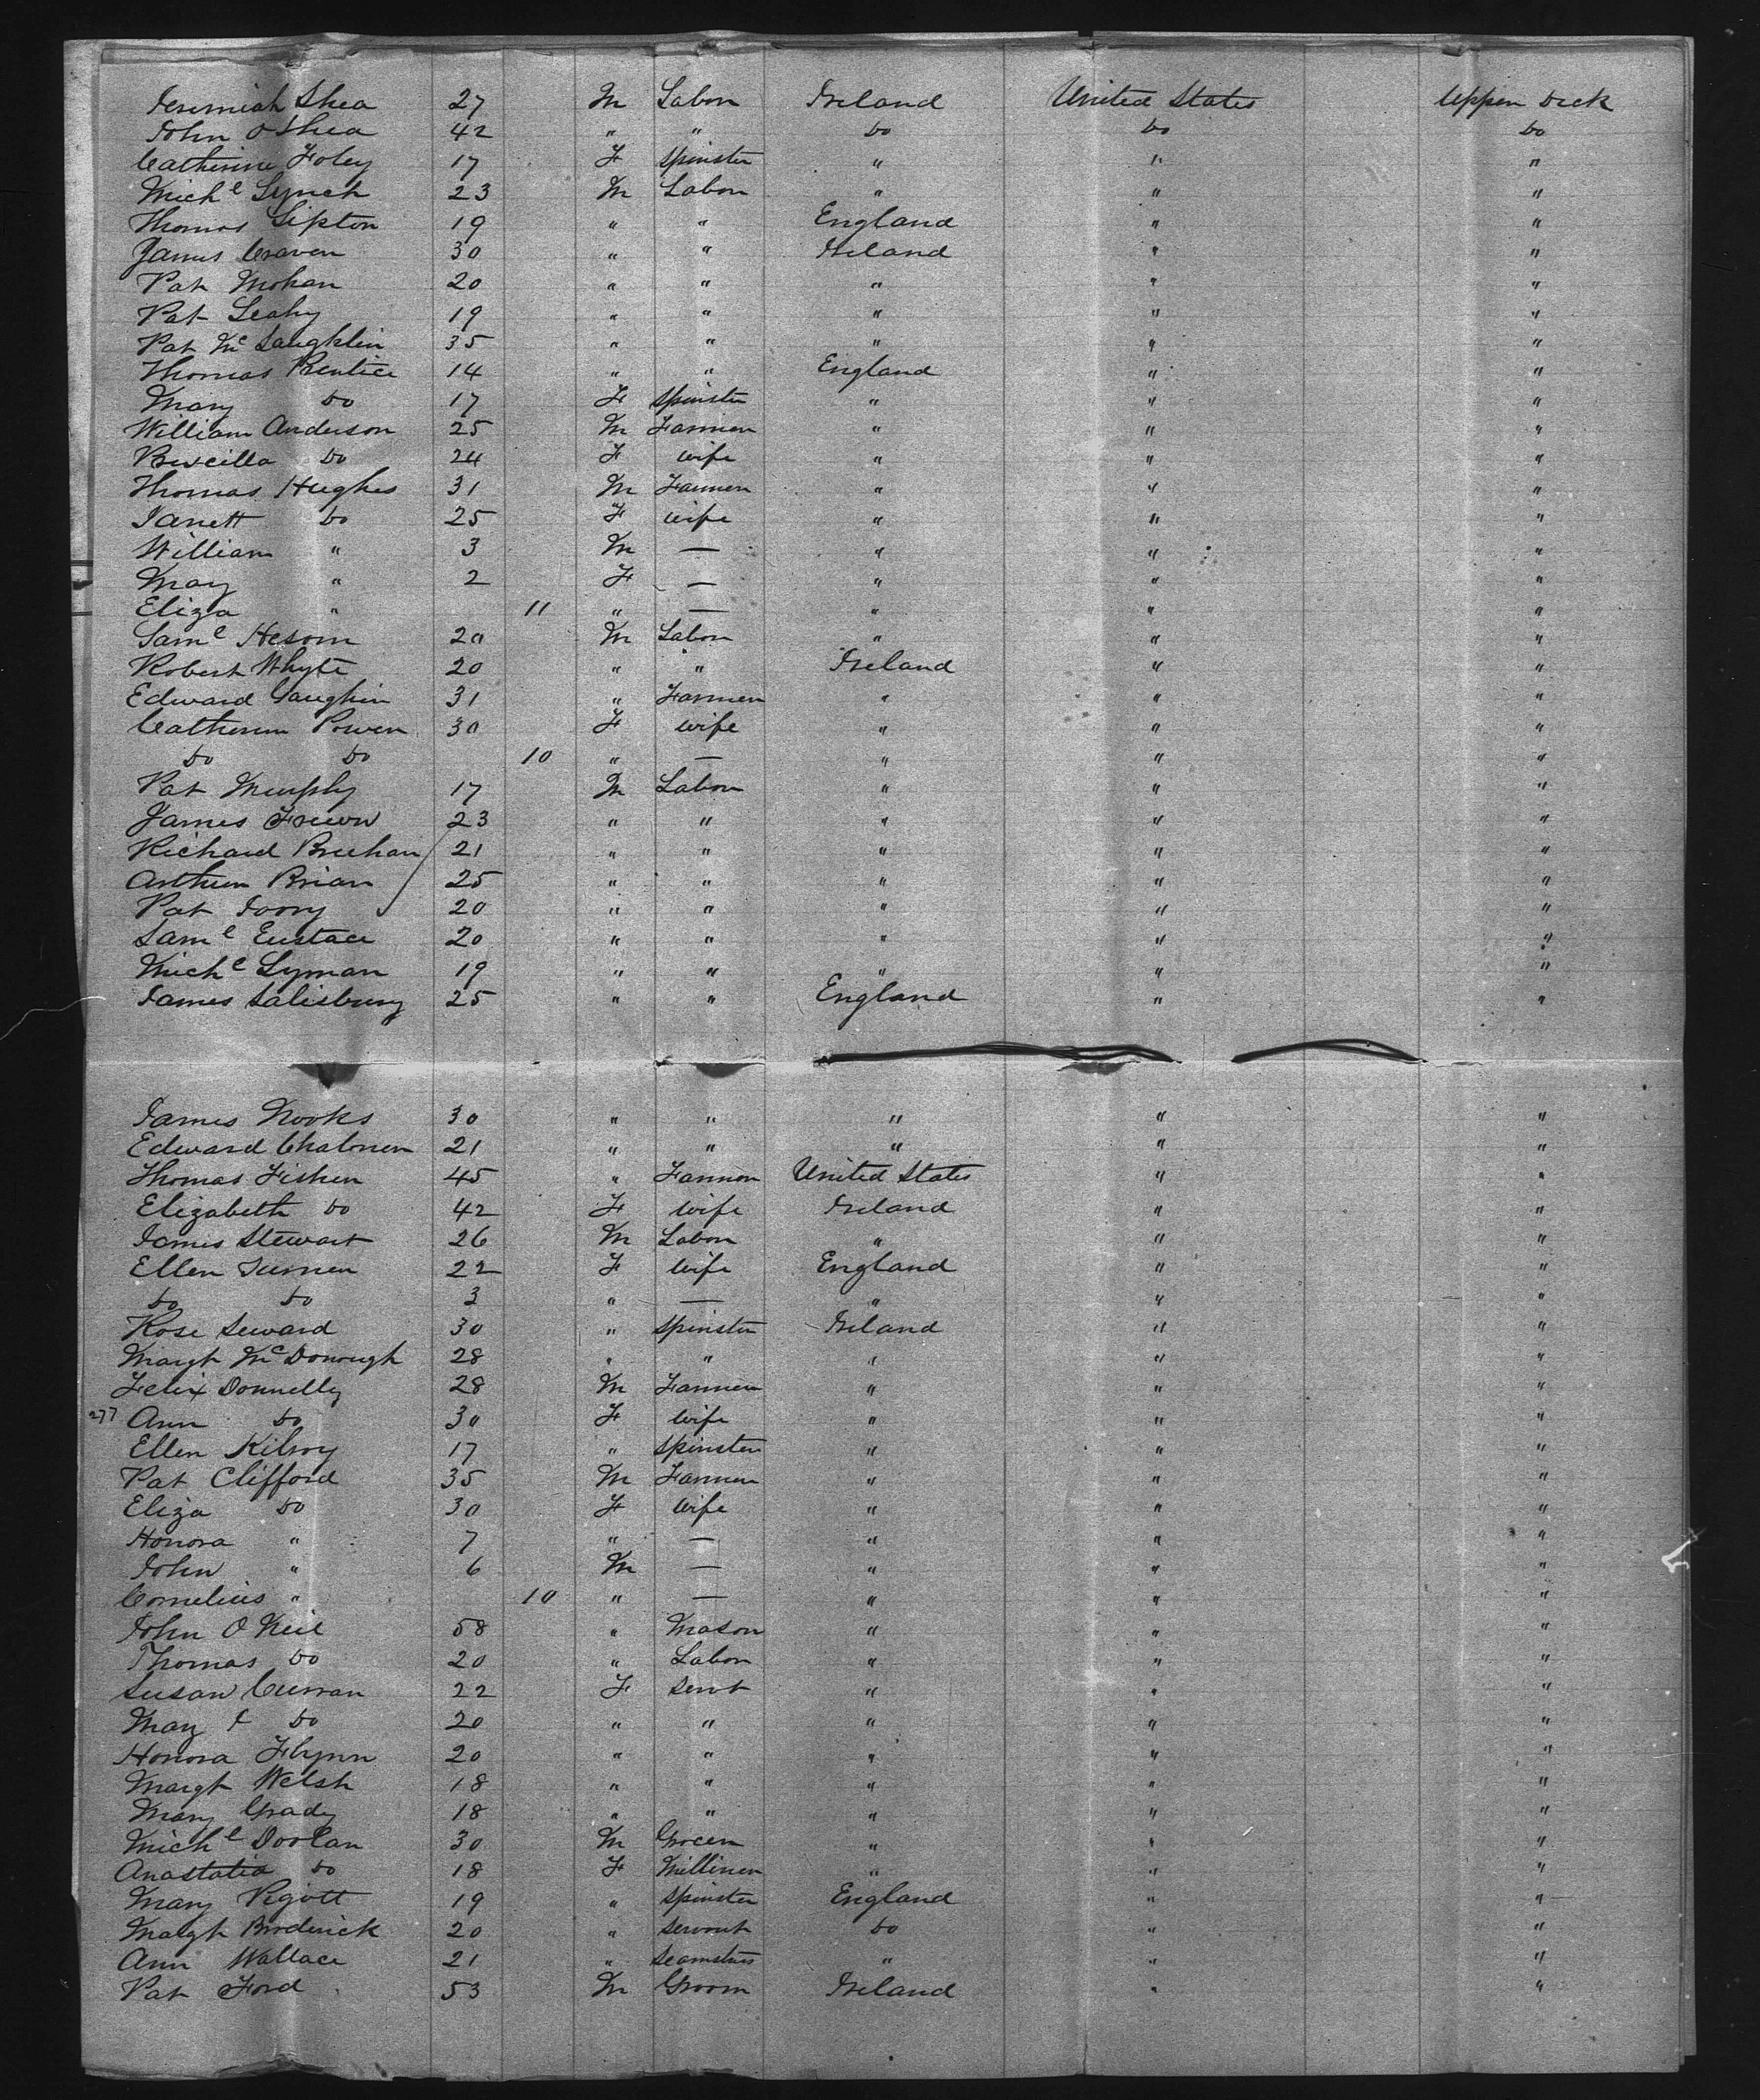 Jeremiah Shea 27 M Labor Ireland United States Upper Deck
John O Shea 42 " " Do Do Do
Catherine Foley 17 F Spinster " " "
Michl Lynch 23 M Labor " " "
Thomas Lipton 19 " " England " "
James Craven 30 " " Ireland " "
Pat Mohan 20 " " " " "
Pat Leahy 19 " " " " "
Pat Mc Laughlin 35 " " " " "
Thomas Prentice 14 " " England " "
Mary Do 17 F Spinster " " "
William Anderson 25 M Farmer " " "
Priscilla Do 24 F Wife " " "
Thomas Hughes 31 M Farmer " " "
Janett Do 25 F Wife " " "
William " 3 M — " " "
Mary " 2 F — " " "
Eliza " 11 " — " " "
Saml Hesom 20 M Labor " " "
Robert Whyte 20 " " Ireland " "
Edward Gaughin 31 " Farmer " " "
Catherine Power 30 F Wife " " "
Do Do 10 " — " " "
Pat Murphy 17 M Labor " " "
James 23 " " " " "
Richard 21 " " " " "
Arthur Brian 25 " " " " "
Pat Ivory 20 " " " " "
Saml Eustace 20 " " " " "
Michl Lyman 19 " " " " "
James Salisbury 25 " " England " "
James Nooks 30 " " " " "
Edward Chaloner 21 " " " " "
Thomas Fisher 45 " Farmer United States " "
Elizabeth Do 42 F Wife Ireland " "
James Stewart 26 M Labor " " "
Ellen Turner 22 F Wife England " "
Do Do 3 " — " " "
Rose Seward 30 " Spinster Ireland " "
Margt McDonough 28 " " " " "
Felix Donnelly 28 M Farmer " " "
277 Ann Do 30 F Wife " " "
Ellen Kilroy 17 " Spinster " " "
Pat Clifford 35 M Farmer " " "
Eliza Do 30 F Wife " " "
Honora " 7 " — " " "
John " 6 M — " " "
Cornelius " 10 " — " " "
John O Neil 58 " Mason " " "
Thomas Do 20 " Labor " " "
Susan Curran 22 F Servt " " "
Mary Do 20 " " " " "
Honora Flynn 20 " " " " "
Margt Welsh 18 " " " " "
Mary Grady 18 " " " " "
Michl Doolan 30 M Grocer " " "
Anastatia Do 18 F Milliner " " "
Mary Pigott 19 " Spinster England " "
Margt Broderick 20 " Servant Do " "
Ann Wallace 21 " Seamstress " " "
Pat Ford 53 M Groom Ireland " "